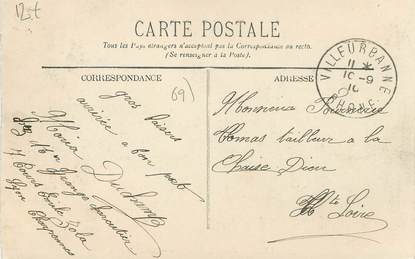 CARTE POSTALE
Tous les Pays étrangers n'acceptent pas la Correspondance au recto.
(Se renseigner à la Poste).
CORRESPONDANCE
ADRESSE
VILLEURBANNE
11
10-9
10
RHONE
69)
gros baisers
arrivée a bon port
Maria Duchamp
Cours Emile Zola
Lyon
Monsieur
tailleur a la
Chaise Dieu
Hte Loire